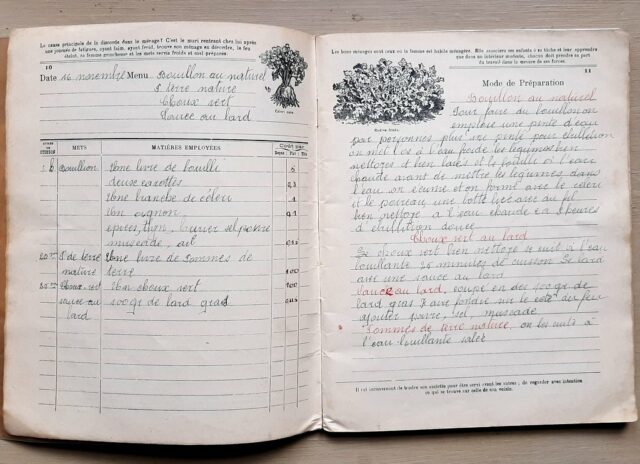 La cause principale de la discorde dans le ménage? C'est le mari rentrant chez lui après
une journée de fatigues, ayant faim, ayant froid, trouve son ménage en désordre, le feu
éteint, sa femme grincheuse et les mets servis froids et mal préparés.
10
Date 16 novembre Menu Bouillon au naturel
P. terre nature
Choux vert
Sauce au lard
Céleri
DURÉE DE CUISSON
METS
MATIÈRES EMPLOYÉES
Coût par
Pers. Fte
Bouillon Une livre de bouilli
deux carottes
Une branche de céleri
Un oignon
thym, laurier sel poivre
muscade, ail
P. de terre Une livre de Pommes de
nature terre
Choux vert Un choux vert
sauce au 100 gr de lard gras
lard
Les bons ménages sont ceux où la femme est habile ménagère. Elle associera ses enfants à sa tâche et leur apprendra
que dans un intérieur modeste, chacun doit prendre sa part
du travail dans la mesure de ses forces.
11
Mode de Préparation
Bouillon au naturel
Pour faire du bouillon on
emploie une pinte d'eau
par personnes plus une pinte pour ébullition
on met cuire à l'eau froide les légumes bien
nettoyés et bien lavés et le bouilli à l'eau
chaude avant de mettre les légumes dans
l'eau on écume et on formé avec le céleri
et le poireau une botte liée avec du fil
bien nettoyé à l'eau chaude 2 à 3 heures
d'ébullition douce
Choux vert au lard
Le choux vert bien nettoyé se cuit à l'eau
bouillante 25 minutes de cuisson Le lard
avec une sauce au lard
Sauce au lard, coupé en des 100 gr de
lard gras faire fondre sur le coté du feu
ajouter poivre, sel, muscade
Pommes de terre nature, on les cuits à
l'eau bouillante salée
Il est inconvenant de tendre son assiette pour être servi avant les autres; de regarder avec intention
ce qui se trouve sur celle de son voisin.